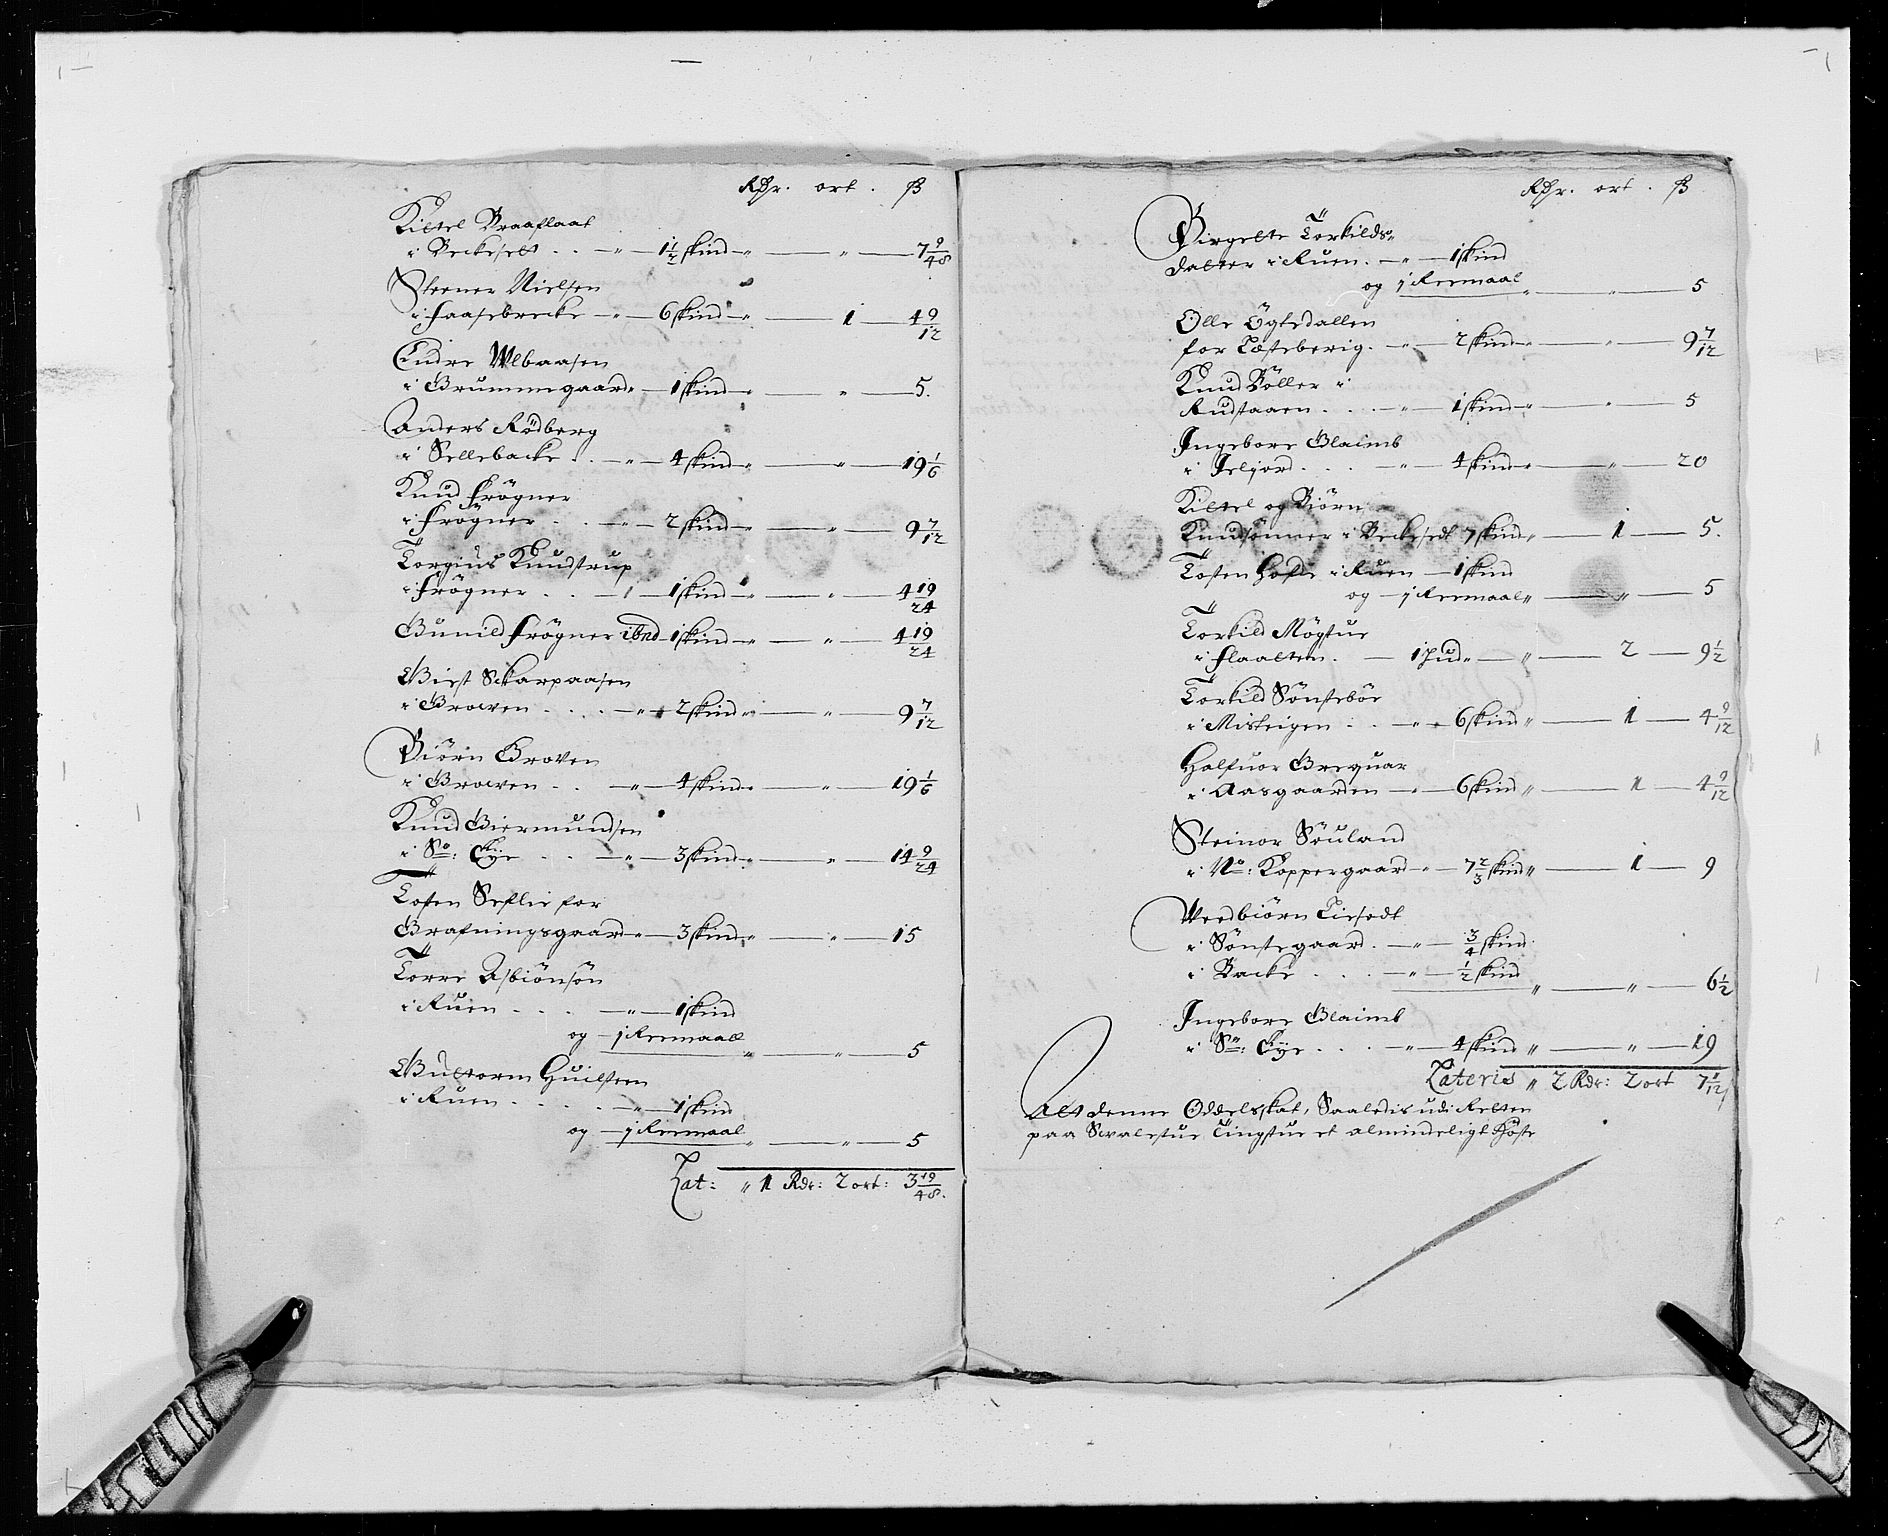 Rdr. ort. ß
Kittel Braaflaat
i Beckeselt . . „ — 1½ skind „ — „ — 7 9/48
Steener Nielsen
i Haasebrecke — „ — 6 skind „ — 1 — 4 9/12
Endre Ulbaasen
i Grummegaard „ — 1 skind „ — „ — 5.
Anders Rödberg
i Sellebacke . . „ — 4 skind „ — „ — 19 1/6
Knud Frögner
i Frögner . . „ — 2 skind „ — „ — 9 7/12
Torgius Knudstrup
i Frögner . . — 1 skind „ — „ — 4 19/24
Gunild Frögner ibnd — 1 skind „ — „ — 4 19/24
Giest Skarpaasen
i Growen . . . . „ — 2 skind „ — „ — 9 7/12
Biörn Groven
i Growen . . „ — 4 skind „ — „ — 19 1/6
Knud Giermundsen
i Sº: Eye . . — „ — 3 skind „ — „ — 14 9/24
Tosten Seflie for
Grafningsgaard „ — 3 skind „ — „ — 15
Torre Asbiönsön
i Ruen . . . — „ — 1 skind
og — j Reemaall „ — „ — 5
Guttorm Huilsteen
i Ruen . . . . — „ — 1 skind
og — j Reemaal „ — „ — 5
Lat: „ 1 Rdr: 2 ort: 3 19/48.
Rdr. ort. ß
Birgette Torkilds„
datter i Ruen. — „ — 1 skind
og j Reemaal „ — „ — 5
Olle Ögtedallen
for Tæsteberig. — „ — 2 skind „ — „ — 9 7/12
Knud Böller i
Rudstaaen . . . — „ — 1 skind „ — „ — 5
Ingebore Glaimb
i Jeljord . . . „ — 4 skind „ — „ — 20
Kittel og Biörn
Knudsönner i Beckesedt 7 skind „ — 1 — 5.
Tosten Hofde i Ruen — 1 skind
og — j Reemaal „ — „ — 5
Torkild Mögtue
i Flaatten. — 1 Hud „ — „ — 2 — 9½
Torkild Sönsteböe
i Misteigen . . — „ — 6 skind „ — 1 — 4 9/12
Halfuor Grequar
i Aasgaarden — „ — 6 skind „ — 1 — 4 9/12
Steinor Söuland
i Nº: Koppergaard — „ — 7⅔ skind „ — 1 — 9
Veedbiörn Tiesedt
i Sönstegaard . — „ — ¾ skind
i Backe . . . — „ — ½ skind „ — „ — 6½
Ingebore Glaimb
i Sº: Eye . . . — „ — 4 skind „ — „ — 19
Lateris „ 2 Rdr: 2 ort 7 1/12
Alt denne Oddelsskat, Saaledis udi Retten
paa Swalestue Tingstue et almindeligt Höste